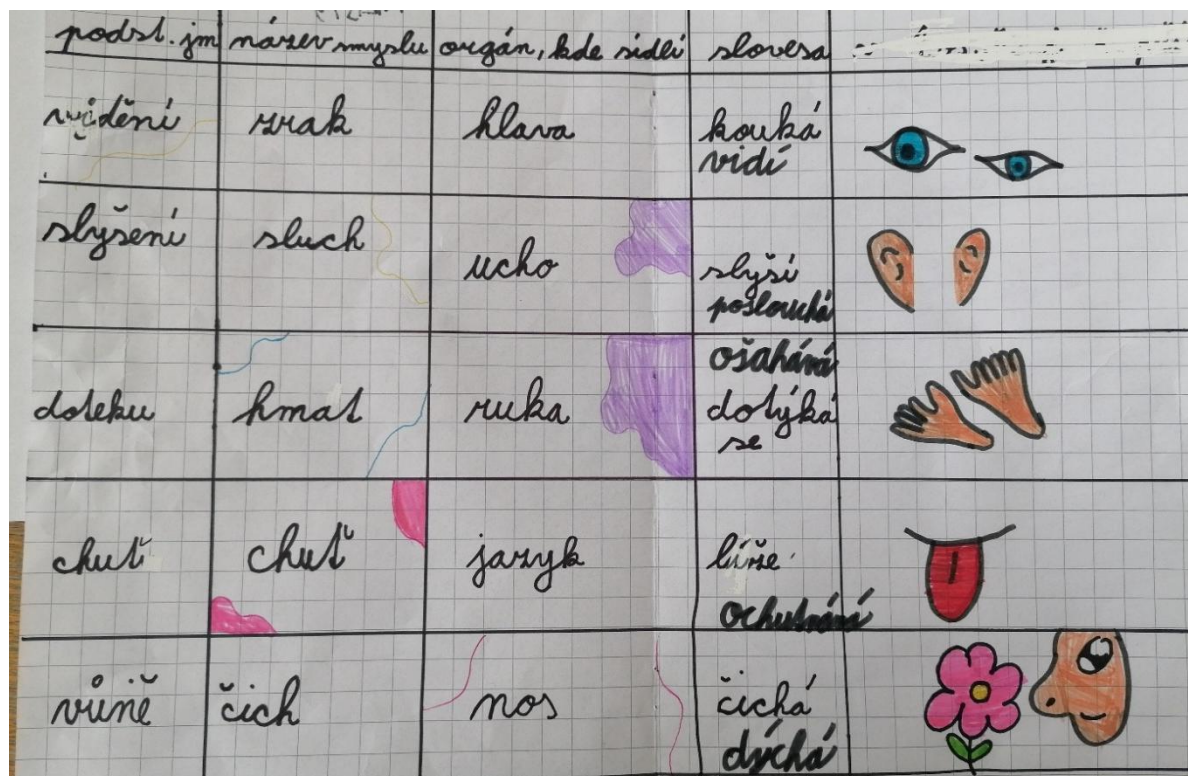 podst. jm název smyslu orgán, kde sídlí slovesa
vidění zrak hlava kouká
vidí
slyšení sluch ucho slyší
poslouchá
ošahává
doteku hmat ruka dotýká
se
chuť chuť jazyk líže
ochutnává
vůně čich nos čichá
dýchá